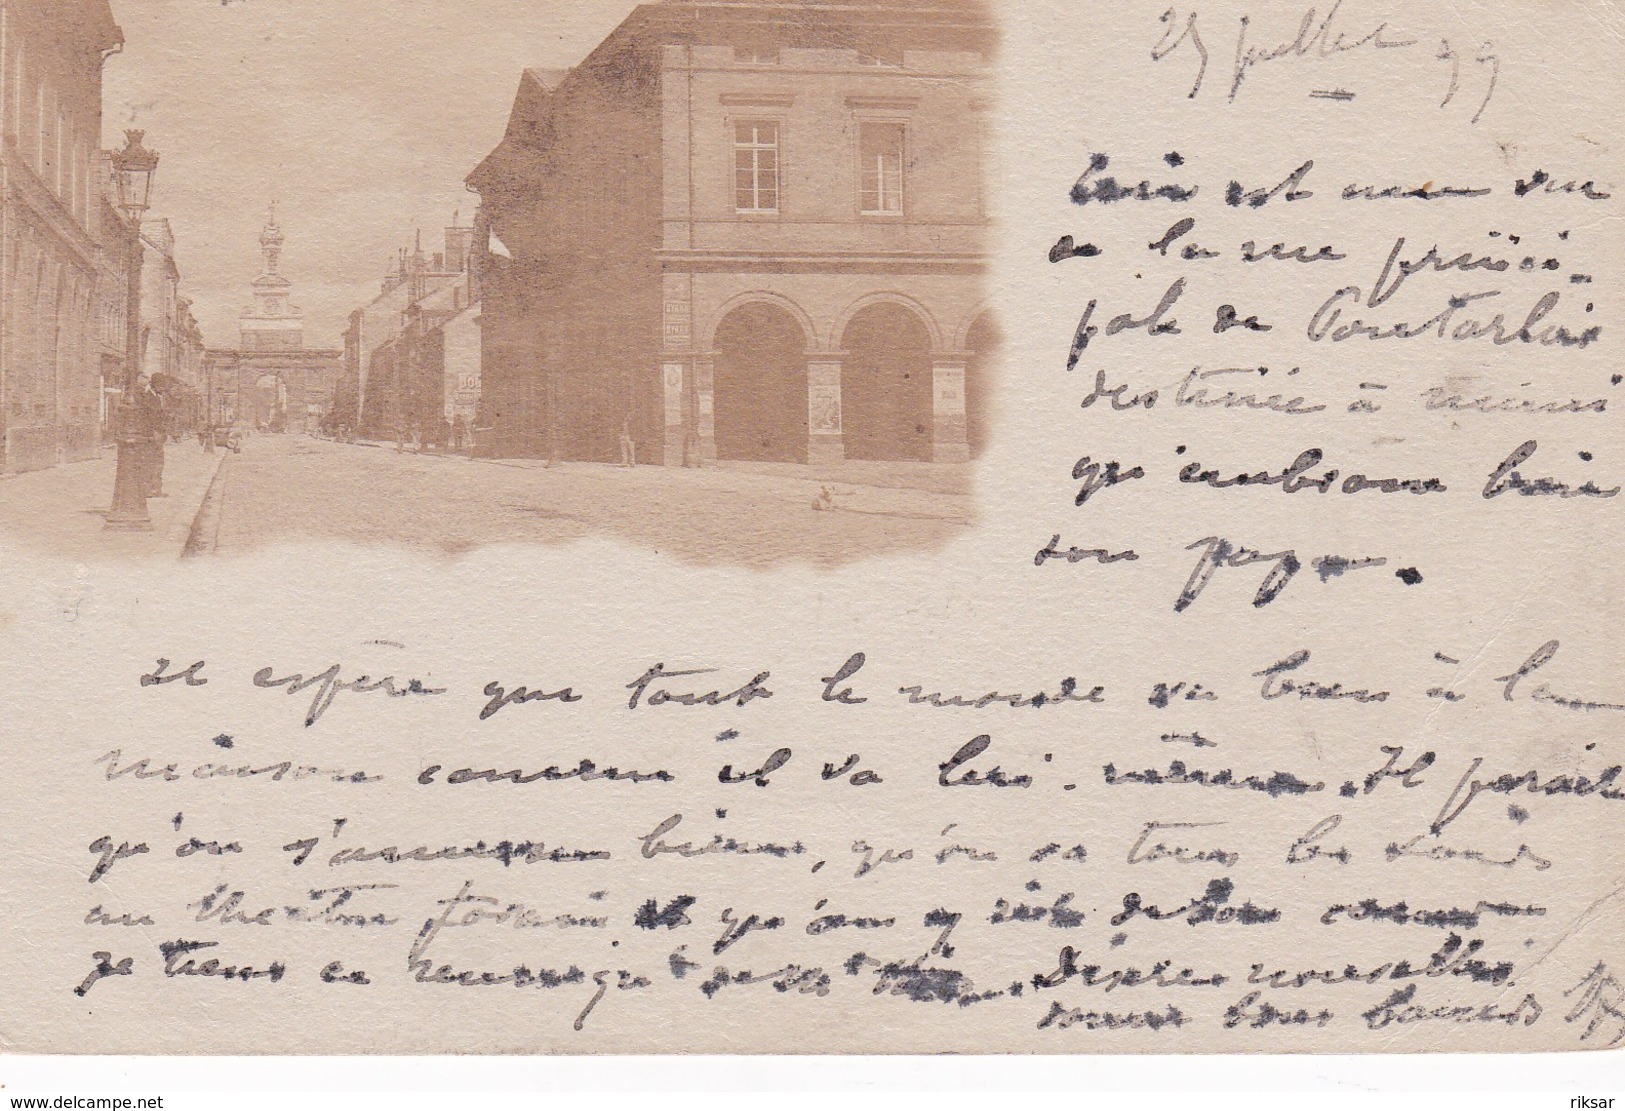 25 juillet 99
Ceci est une vue
de la rue princi-
pale de Pontarlier
destinée à mimi
qu'embrasse bien
son papa.
Il espère que tout le monde va bien à la
maison comme il va lui-même. Il paraît
qu'on s'amuse bien, qu'on va tous les soirs
au théâtre forain et qu'on y rit de bon coeur
Je tiens ce
Désire nouvelles
bons baisers
www.delcampe.net
riksar